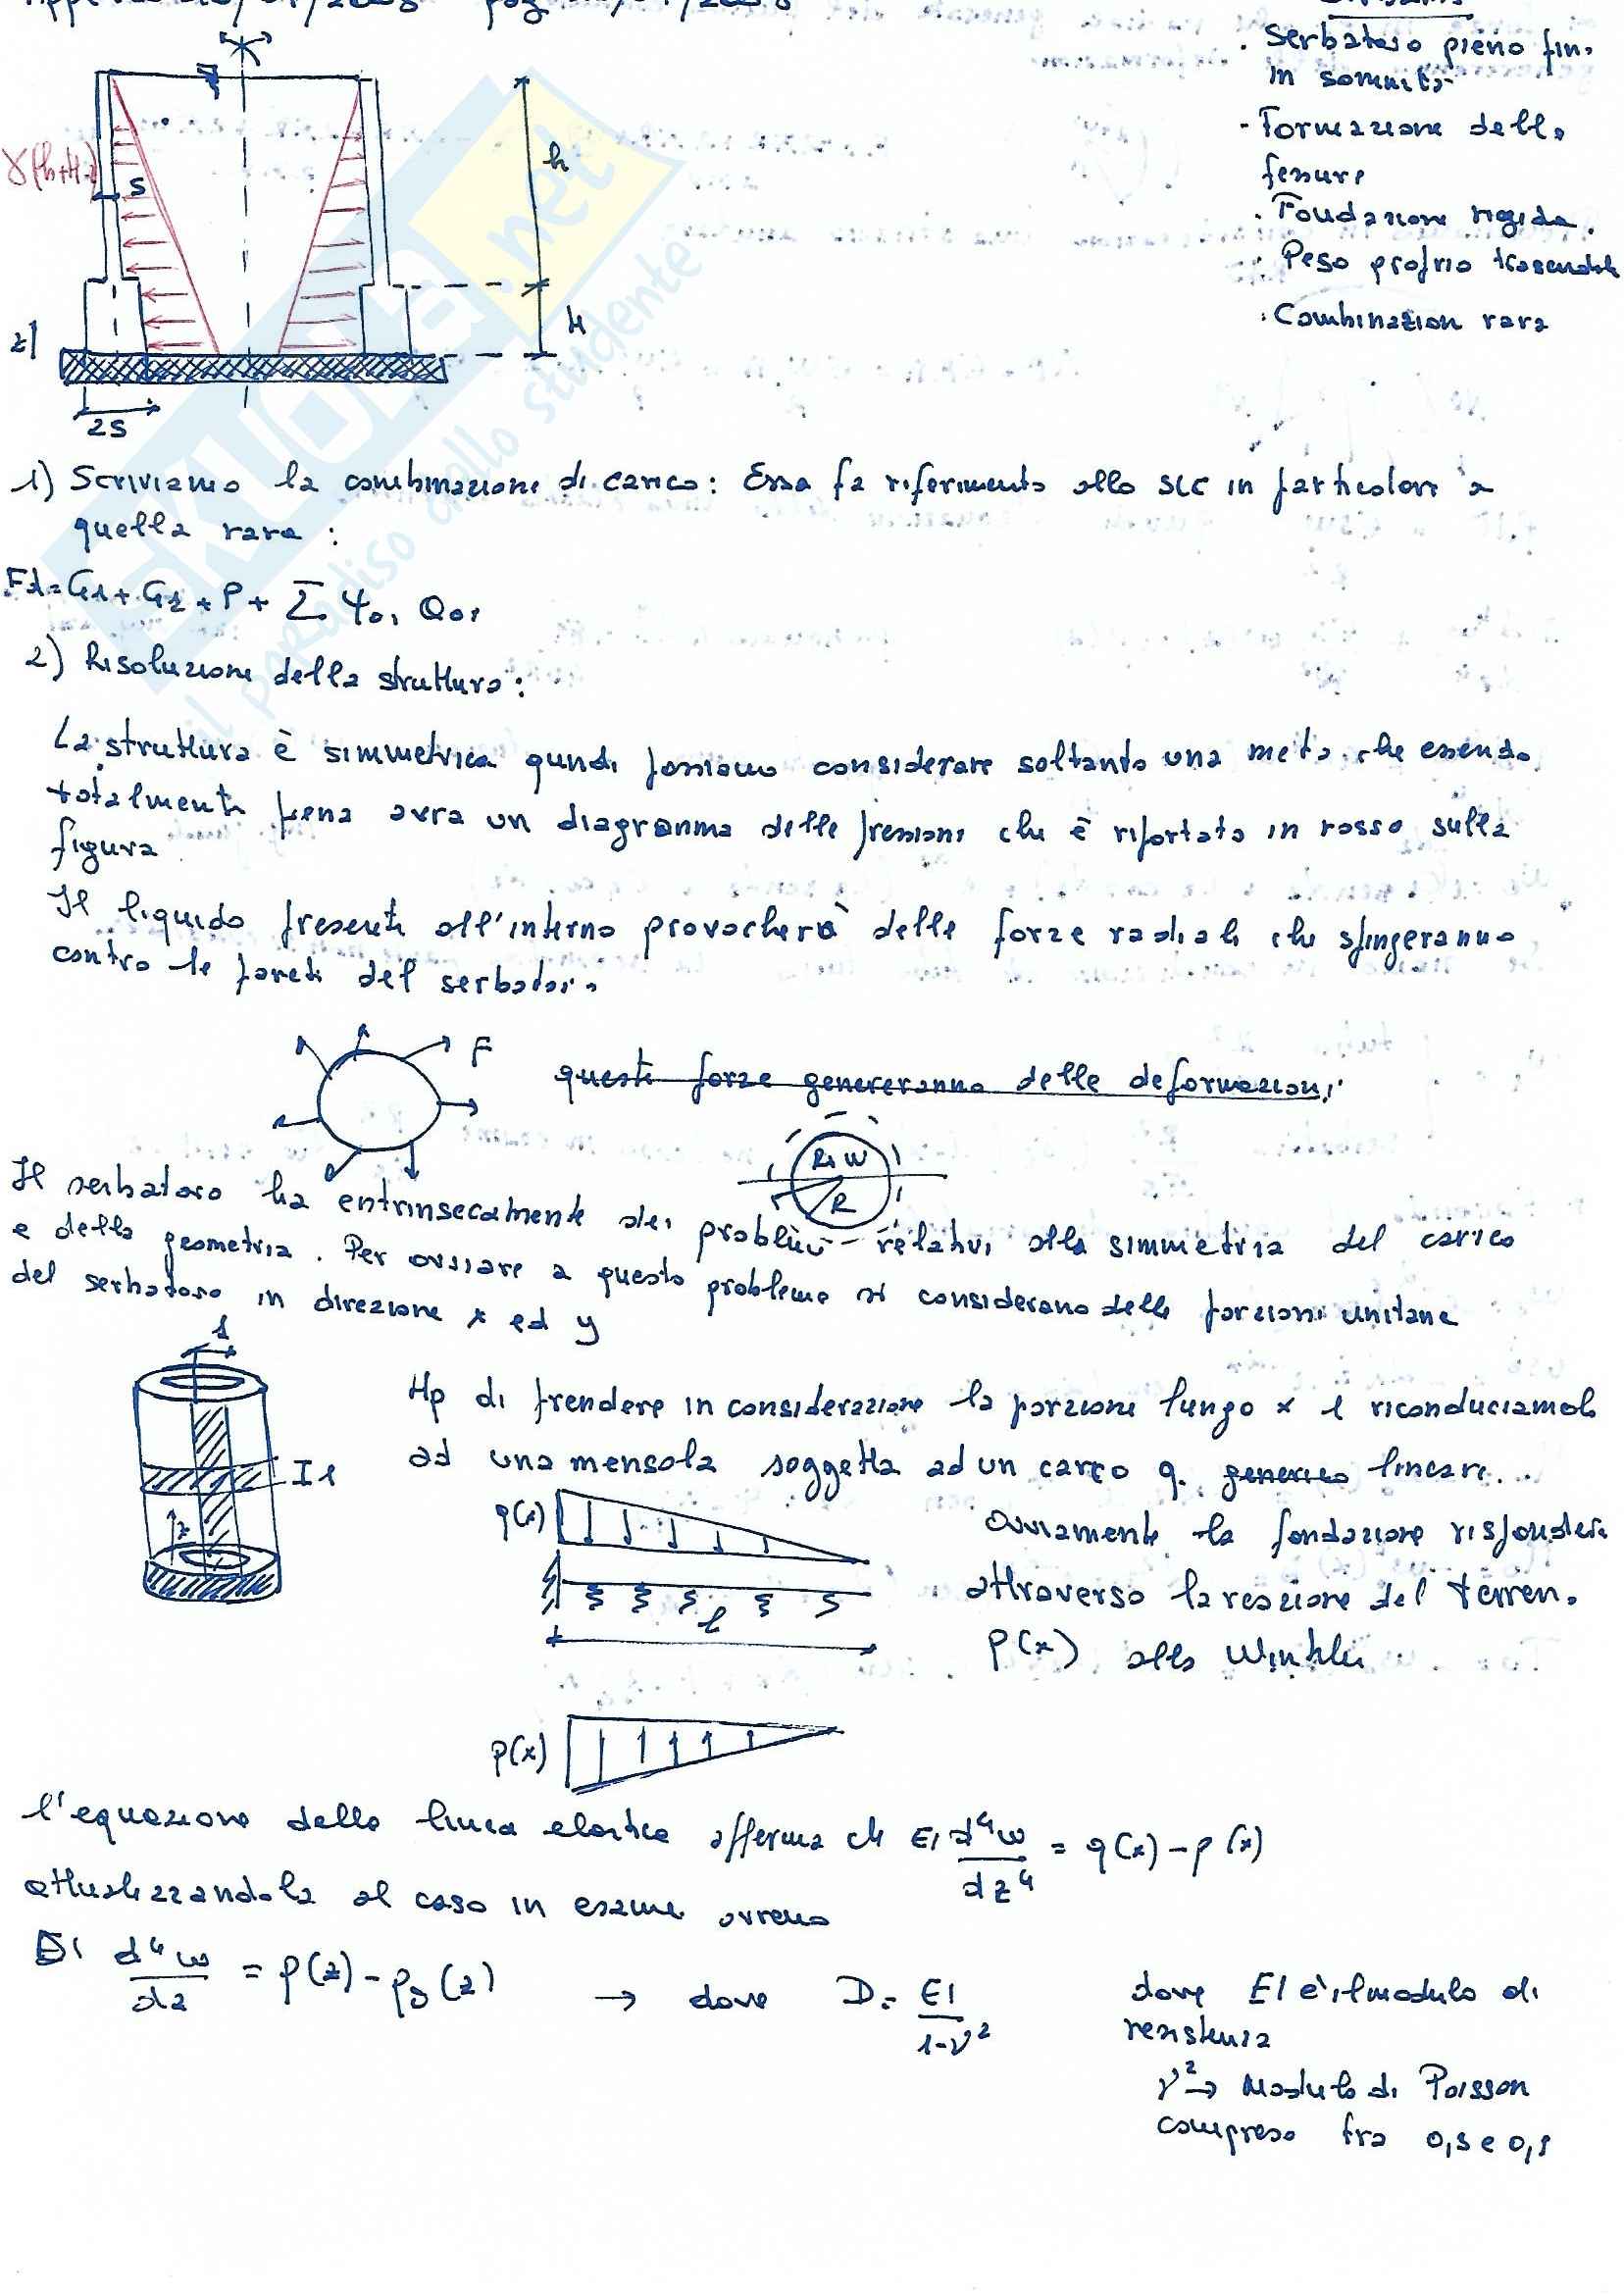 . Serbatoio pieno fin.
in sommità
- Formazione delle
fessure
. Fondazione rigida.
. Peso proprio trascurabile
. Combinazion rara
h
γ(h+H-z)
s
H
z
2s
1) Scriviamo la combinazione di carico: Essa fa riferimento allo SLE in particolare a
quella rara:
Fd=G1+G2+P+ Σ Ψ0i Q0i
2) Risoluzione della struttura:
La struttura è simmetrica quindi possiamo considerare soltanto una metà che essendo
totalmente piena avrà un diagramma delle pressioni che è riportato in rosso sulla
figura
Il liquido presente all'interno provocherà delle forze radiali che spingeranno
contro le pareti del serbatoio
F
queste forze genereranno delle deformazioni
R+W
R
Il serbatoio ha entrinsecamente dei problemi relativi alla simmetria del carico
e della geometria. Per ovviare a questo problema si considerano delle porzioni unitarie
del serbatoio in direzione x ed y
1
Hp di prendere in considerazione la porzione lungo x e riconduciamola
ad una mensola soggetta ad un carico q. generico lineare..
I1
z
q(x)
l
Ovviamente la fondazione risponderà
attraverso la reazione del terreno
p(x) alla Winkler
p(x)
l'equazione della linea elastica afferma che EI d⁴w/dz⁴ = q(x)-p(x)
attualizzandola al caso in esame avremo
d⁴w/dz = p(z)-pg(z) → dove D= EI/1-ν²
dove EI è il modulo di
resistenza
ν² → Modulo di Poisson
compreso fra
skuola.net
il paradiso dello studente